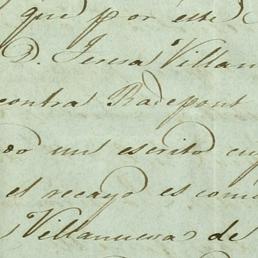 que por este
D. Teresa Villan
contra Radepont
do un escrito cu
el recayo es como
Villanueva de